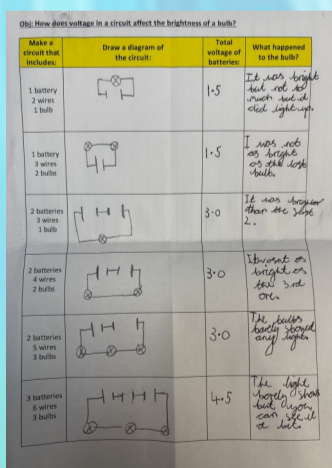 Obj: How does voltage in a circuit affect the brightness of a bulb?
Make a
circuit that
includes:
Draw a diagram of
the circuit:
Total
voltage of
batteries:
What happened
to the bulb?
1 battery
2 wires
1 bulb
1.5
It was bright
but not so
much but it
did light up.
1 battery
3 wires
2 bulbs
1.5
I was not
as bright
as the last
bulb.
2 batteries
3 wires
1 bulb
3.0
It was
than the last
2.
2 batteries
4 wires
2 bulbs
3.0
It wasnt as
bright as
the 3rd
one.
2 batteries
5 wires
3 bulbs
3.0
The bulbs
any light
3 batteries
6 wires
3 bulbs
4.5
The light
but you
can see it
a bit.